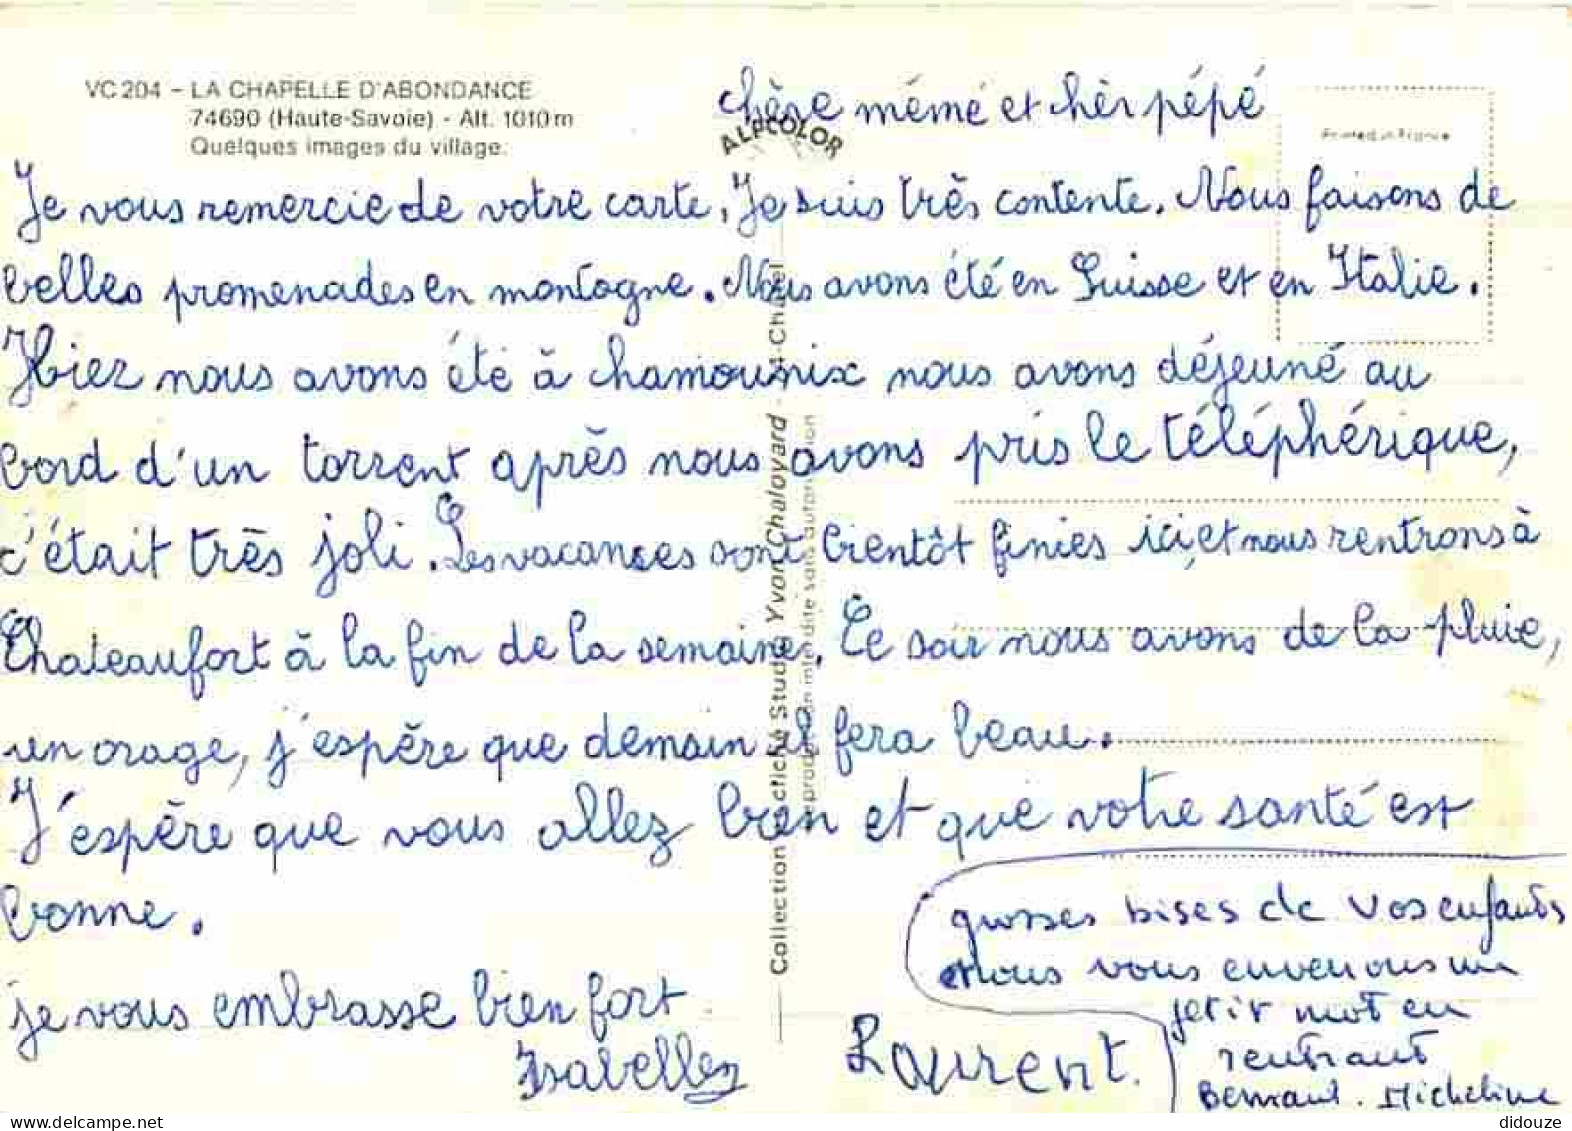 VC 204 - LA CHAPELLE D'ABONDANCE
74690 (Haute-Savoie) - Alt. 1010 m
Quelques images du village.
ALPCOLOR
Printed in France
chère mémé et chèr pépé
Je vous remercie de votre carte. Je suis très contente. Nous faisons de
belles promenades en montagne. Nous avons été en Suisse et en Italie.
Hier nous avons été à chamounix nous avons déjeuné au
bord d'un torrent après nous avons pris le téléphérique,
c'était très joli. Les vacances sont bientôt finies ici, et nous rentrons à
Chateaufort à la fin de la semaine. Ce soir nous avons de la pluie,
un orage, j'espère que demain il fera beau.
J'espère que vous allez bien et que votre santé est
bonne.
je vous embrasse bien fort
Isabelle
Laurent.
grosses bises de vos enfants
et nous vous enverrons un
petit mot en
rentrant
Bernard. Micheline
Collection cliché Studio Yvon Chaloyard - 74-Châtel
Reproduction interdite sans autorisation
didouze